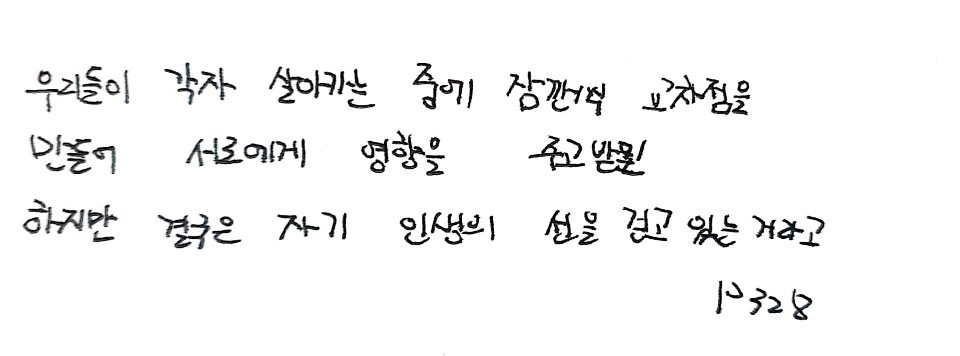 우리들이 각자 살아가는 중에 잠깐씩 교차점을
만들어 서로에게 영향을 주고받뿐
하지만 결국은 자기 인생의 선을 걷고 있는 거라고
P328